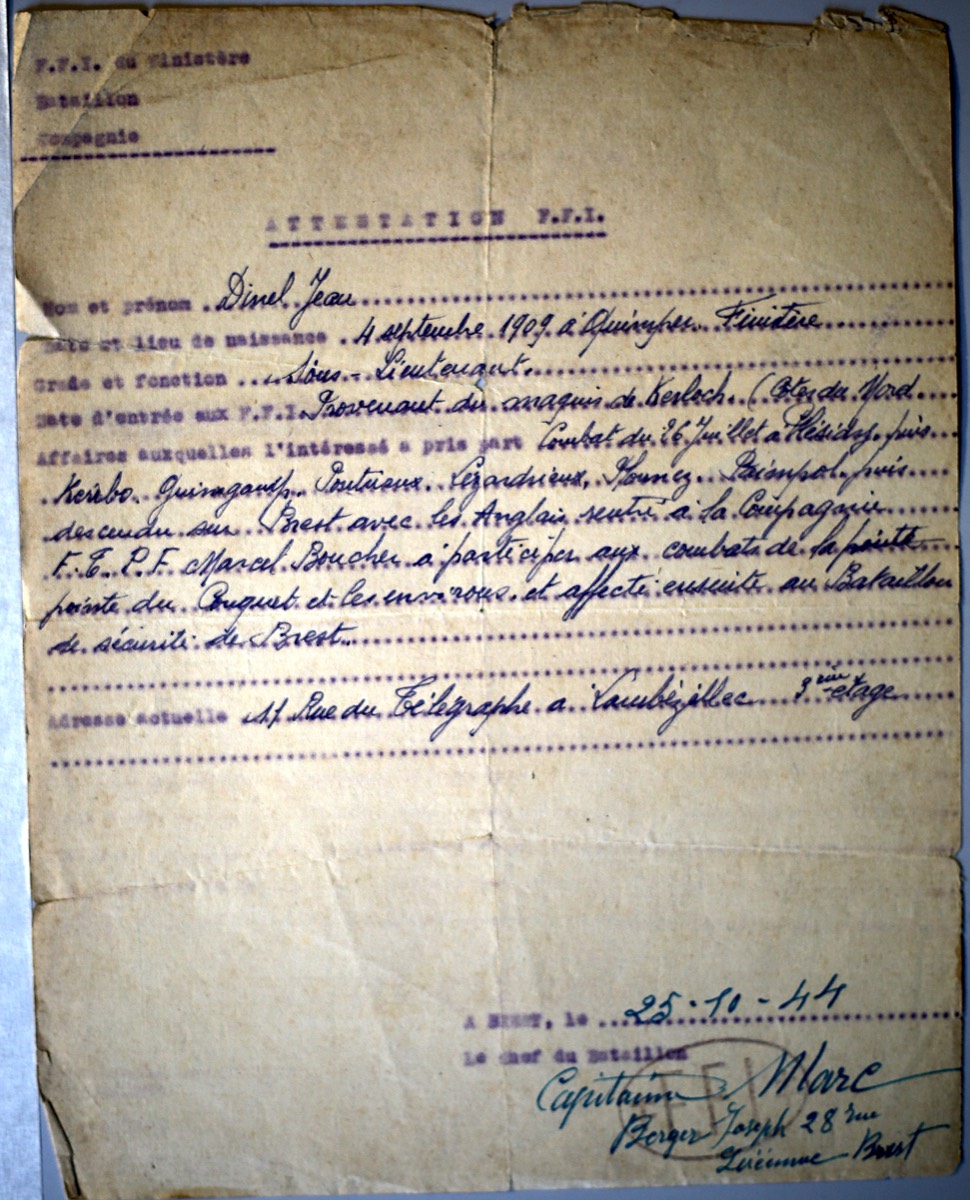 F.F.I. du Finistère
Bataillon
Compagnie
ATTESTATION F.F.I.
Nom et prénom . Dinel Jean
Date et lieu de naissance . 4 septembre 1909 à Quimper. Finistère
Grade et fonction ... Sous-Lieutenant.
Date d'entrée aux F.F.I. Provenant du maquis de Kerloch. (Côtes du Nord
Affaires auxquelles l'intéressé a pris part Combat du 26 Juillet a Plésidy. puis
Guingamp. Pontrieux. Lézardrieux, Paimpol. puis
descendu sur Brest avec les Anglais rentré à la Compagnie
F.T.P.F. Marcel Boucher à participer aux combats de la pointe
pointe du Conquet et les environs. et affecté ensuite au Bataillon
de sécurité de Brest.
Adresse actuelle Rue du Télégraphe a Lambézellec 3ème étage
A BREST, le 25-10-44
Le Chef du Bataillon
Capitaine Marc
FFI
Berger Joseph 28 rue
Brest